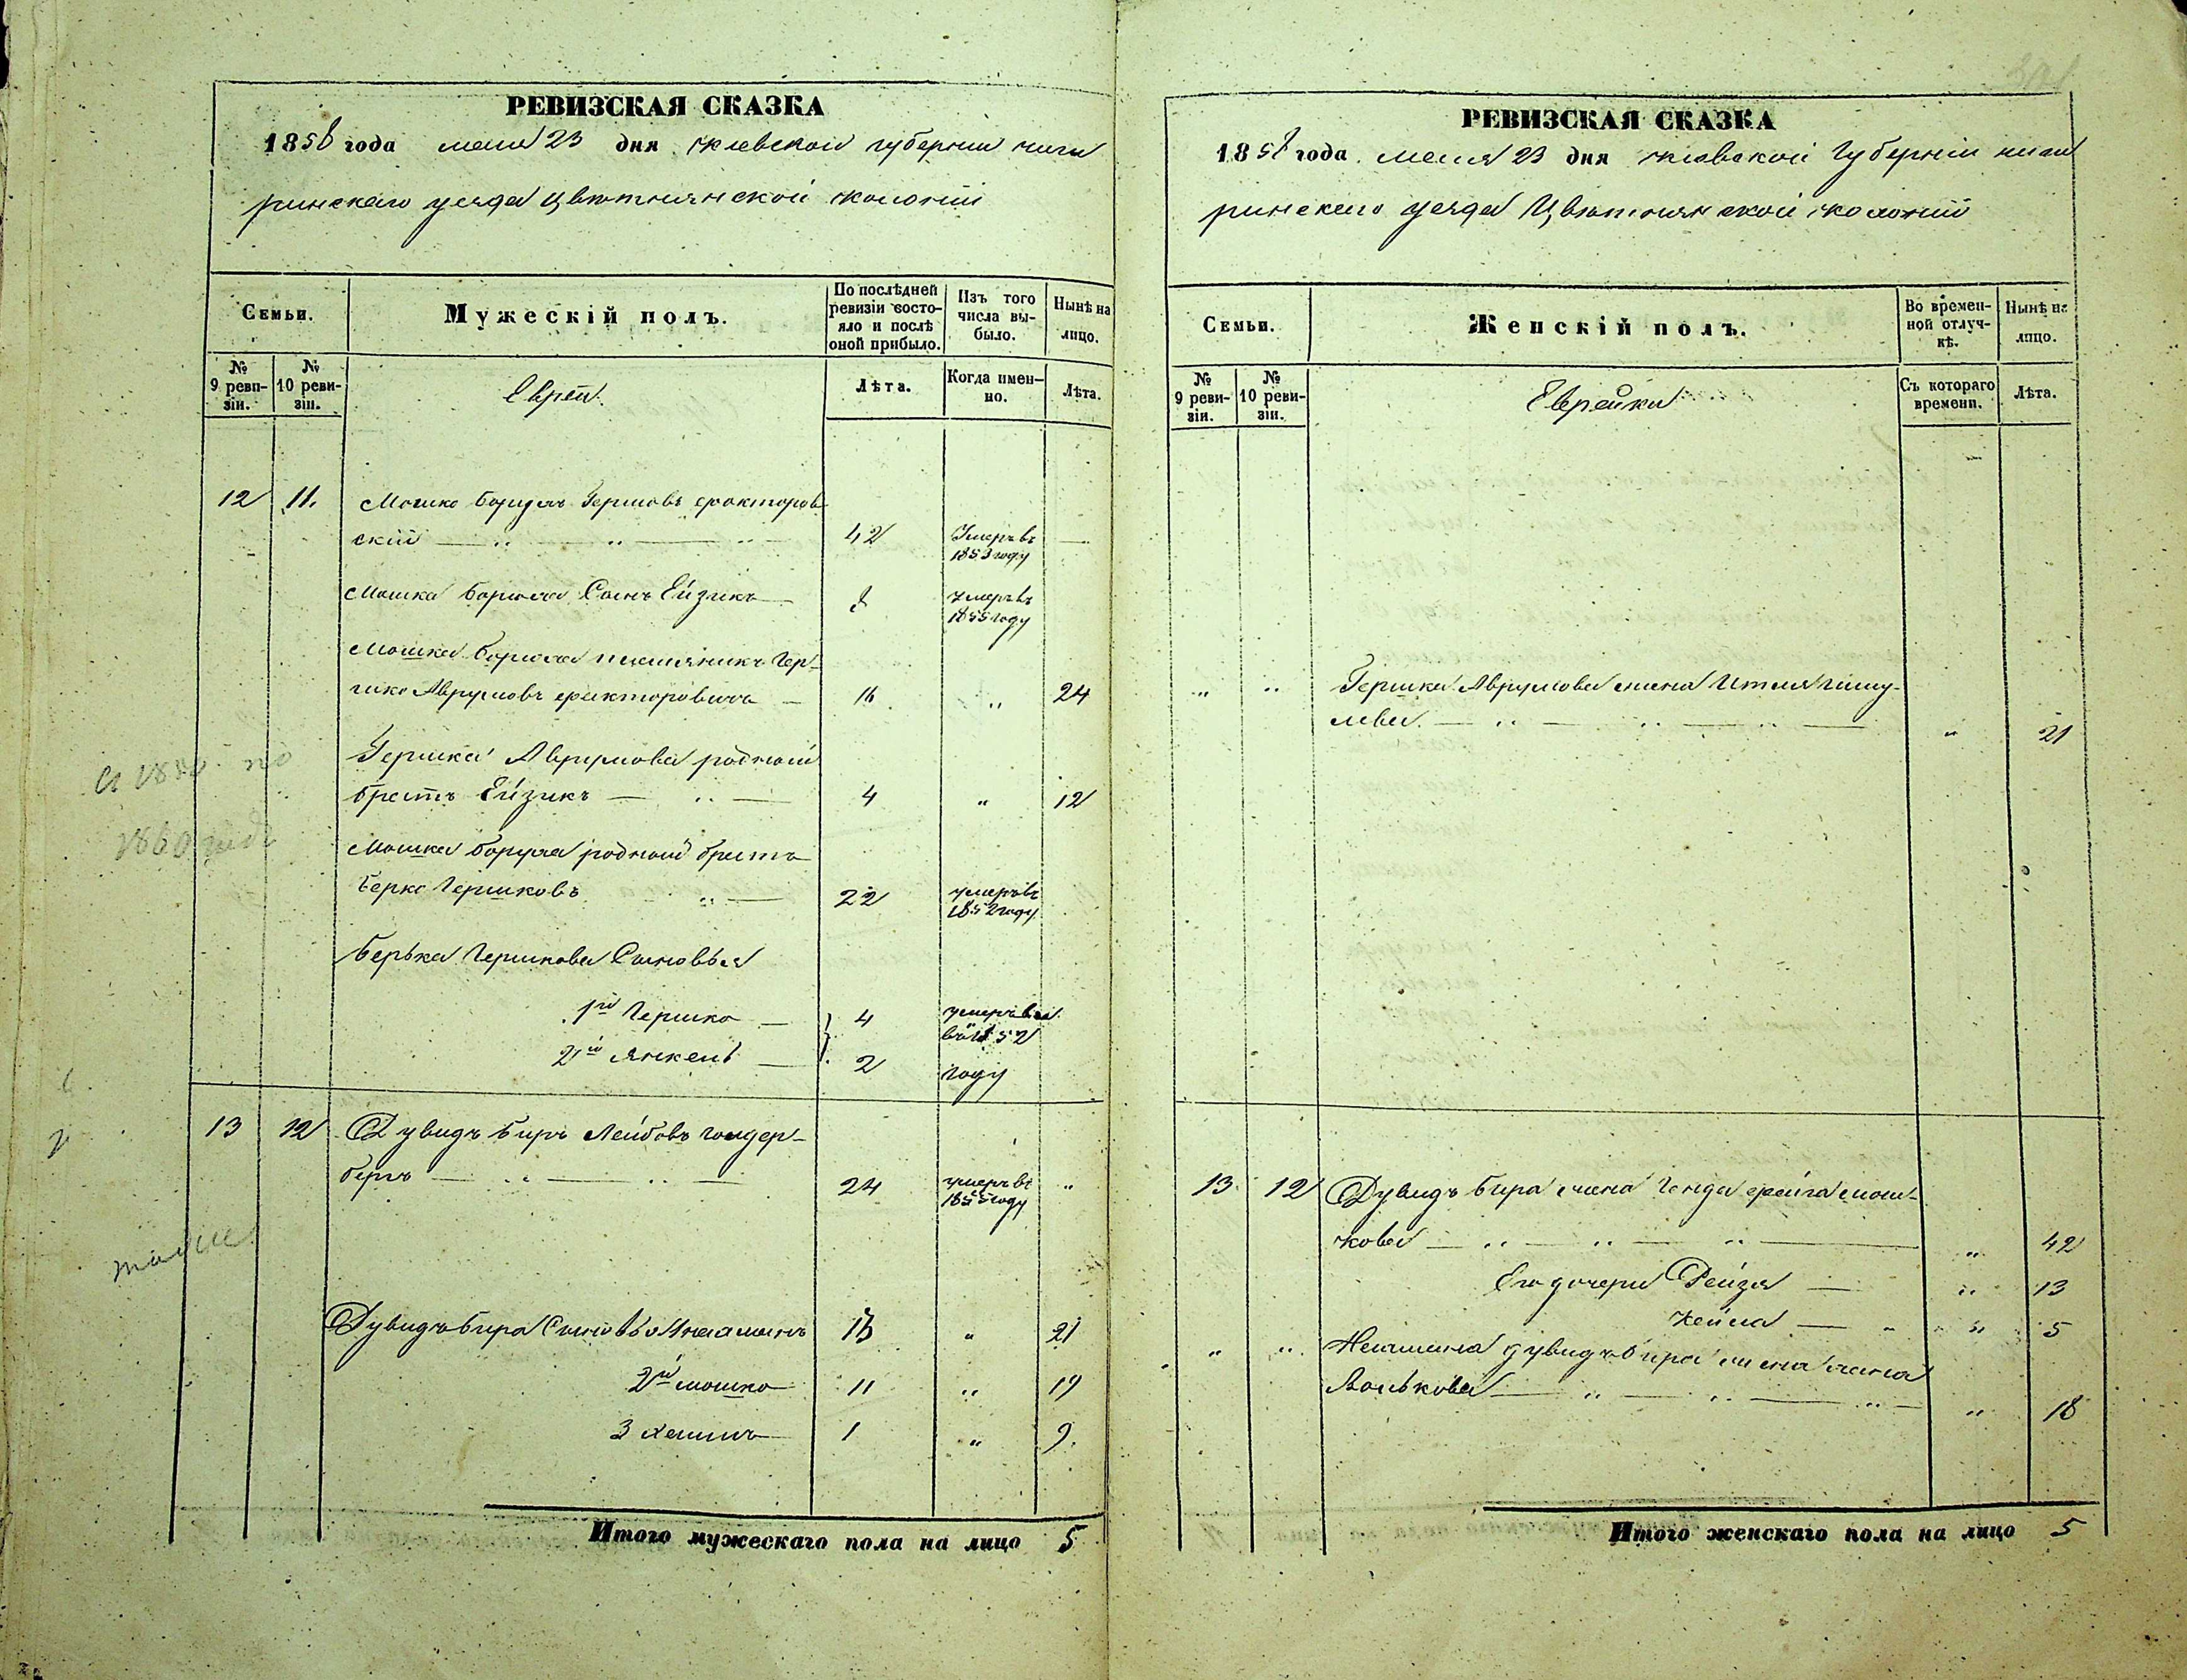 РЕВИЗСКАЯ СКАЗКА
1858 года мая 23 дня Киевской губернии Чиги
ринскаго уезда Цветнянской колонии
Семьи.
Мужескій полъ.
По послѣдней ревизіи состо-
яло и послѣ
оной прибыло.
Изъ того
числа вы-
было.
Нынѣ на
лицо.
№
9 реви-
зіи.
№
10 реви-
зіи.
Евреи.
Лѣта.
Когда имен-
но.
Лѣта.
12 11. Мошко Борухъ Гершовъ Факторов
ский 42 Умеръ въ 1853 году
Мошка Боруха Сынъ Ейзикъ 8 умеръ въ 1855 году
Мошка Боруха племяникъ Гер-
шко Аврумовъ Факторовичъ 16 " 24
Гершка Аврумова родной
братъ Ейзикъ 4 " 12
Мошка Боруха родной братъ
Берко Гершковъ 22 умеръ въ 1852 году
Берька Гершкова Сыновья
1й Гершко 4
2й Янкель 2 году
1860 году
13 12 Дувидъ Беръ Лейбовъ Гольдер-
бергъ 24 умеръ въ 1855 году "
Дувидъ Бера Сыновья 13 " 21
2й Мошко 11 " 19
3 Хаимъ 1 " 9
Итого мужескаго пола на лицо 5
РЕВИЗСКАЯ СКАЗКА
1858 года мая 23 дня Киевской Губернии Чиги
ринскаго уезда Цветнянской колонии
Семьи.
Женскій полъ.
Во времен-
ной отлуч-
кѣ.
Нынѣ на
лицо.
№
9 реви-
зіи.
№
10 реви-
зіи.
Еврейки
Съ котораго
времени.
Лѣта.
" " Гершка Аврумова жена Итля
" 21
13 12 Дувидъ Бера жена Генда Фейга Мош-
кова " 42
Его дочери Рейзя " 13
Хейла " 5
" " Дувидъ Бера жена Хана
Волькова " 18
Итого женскаго пола на лицо 5